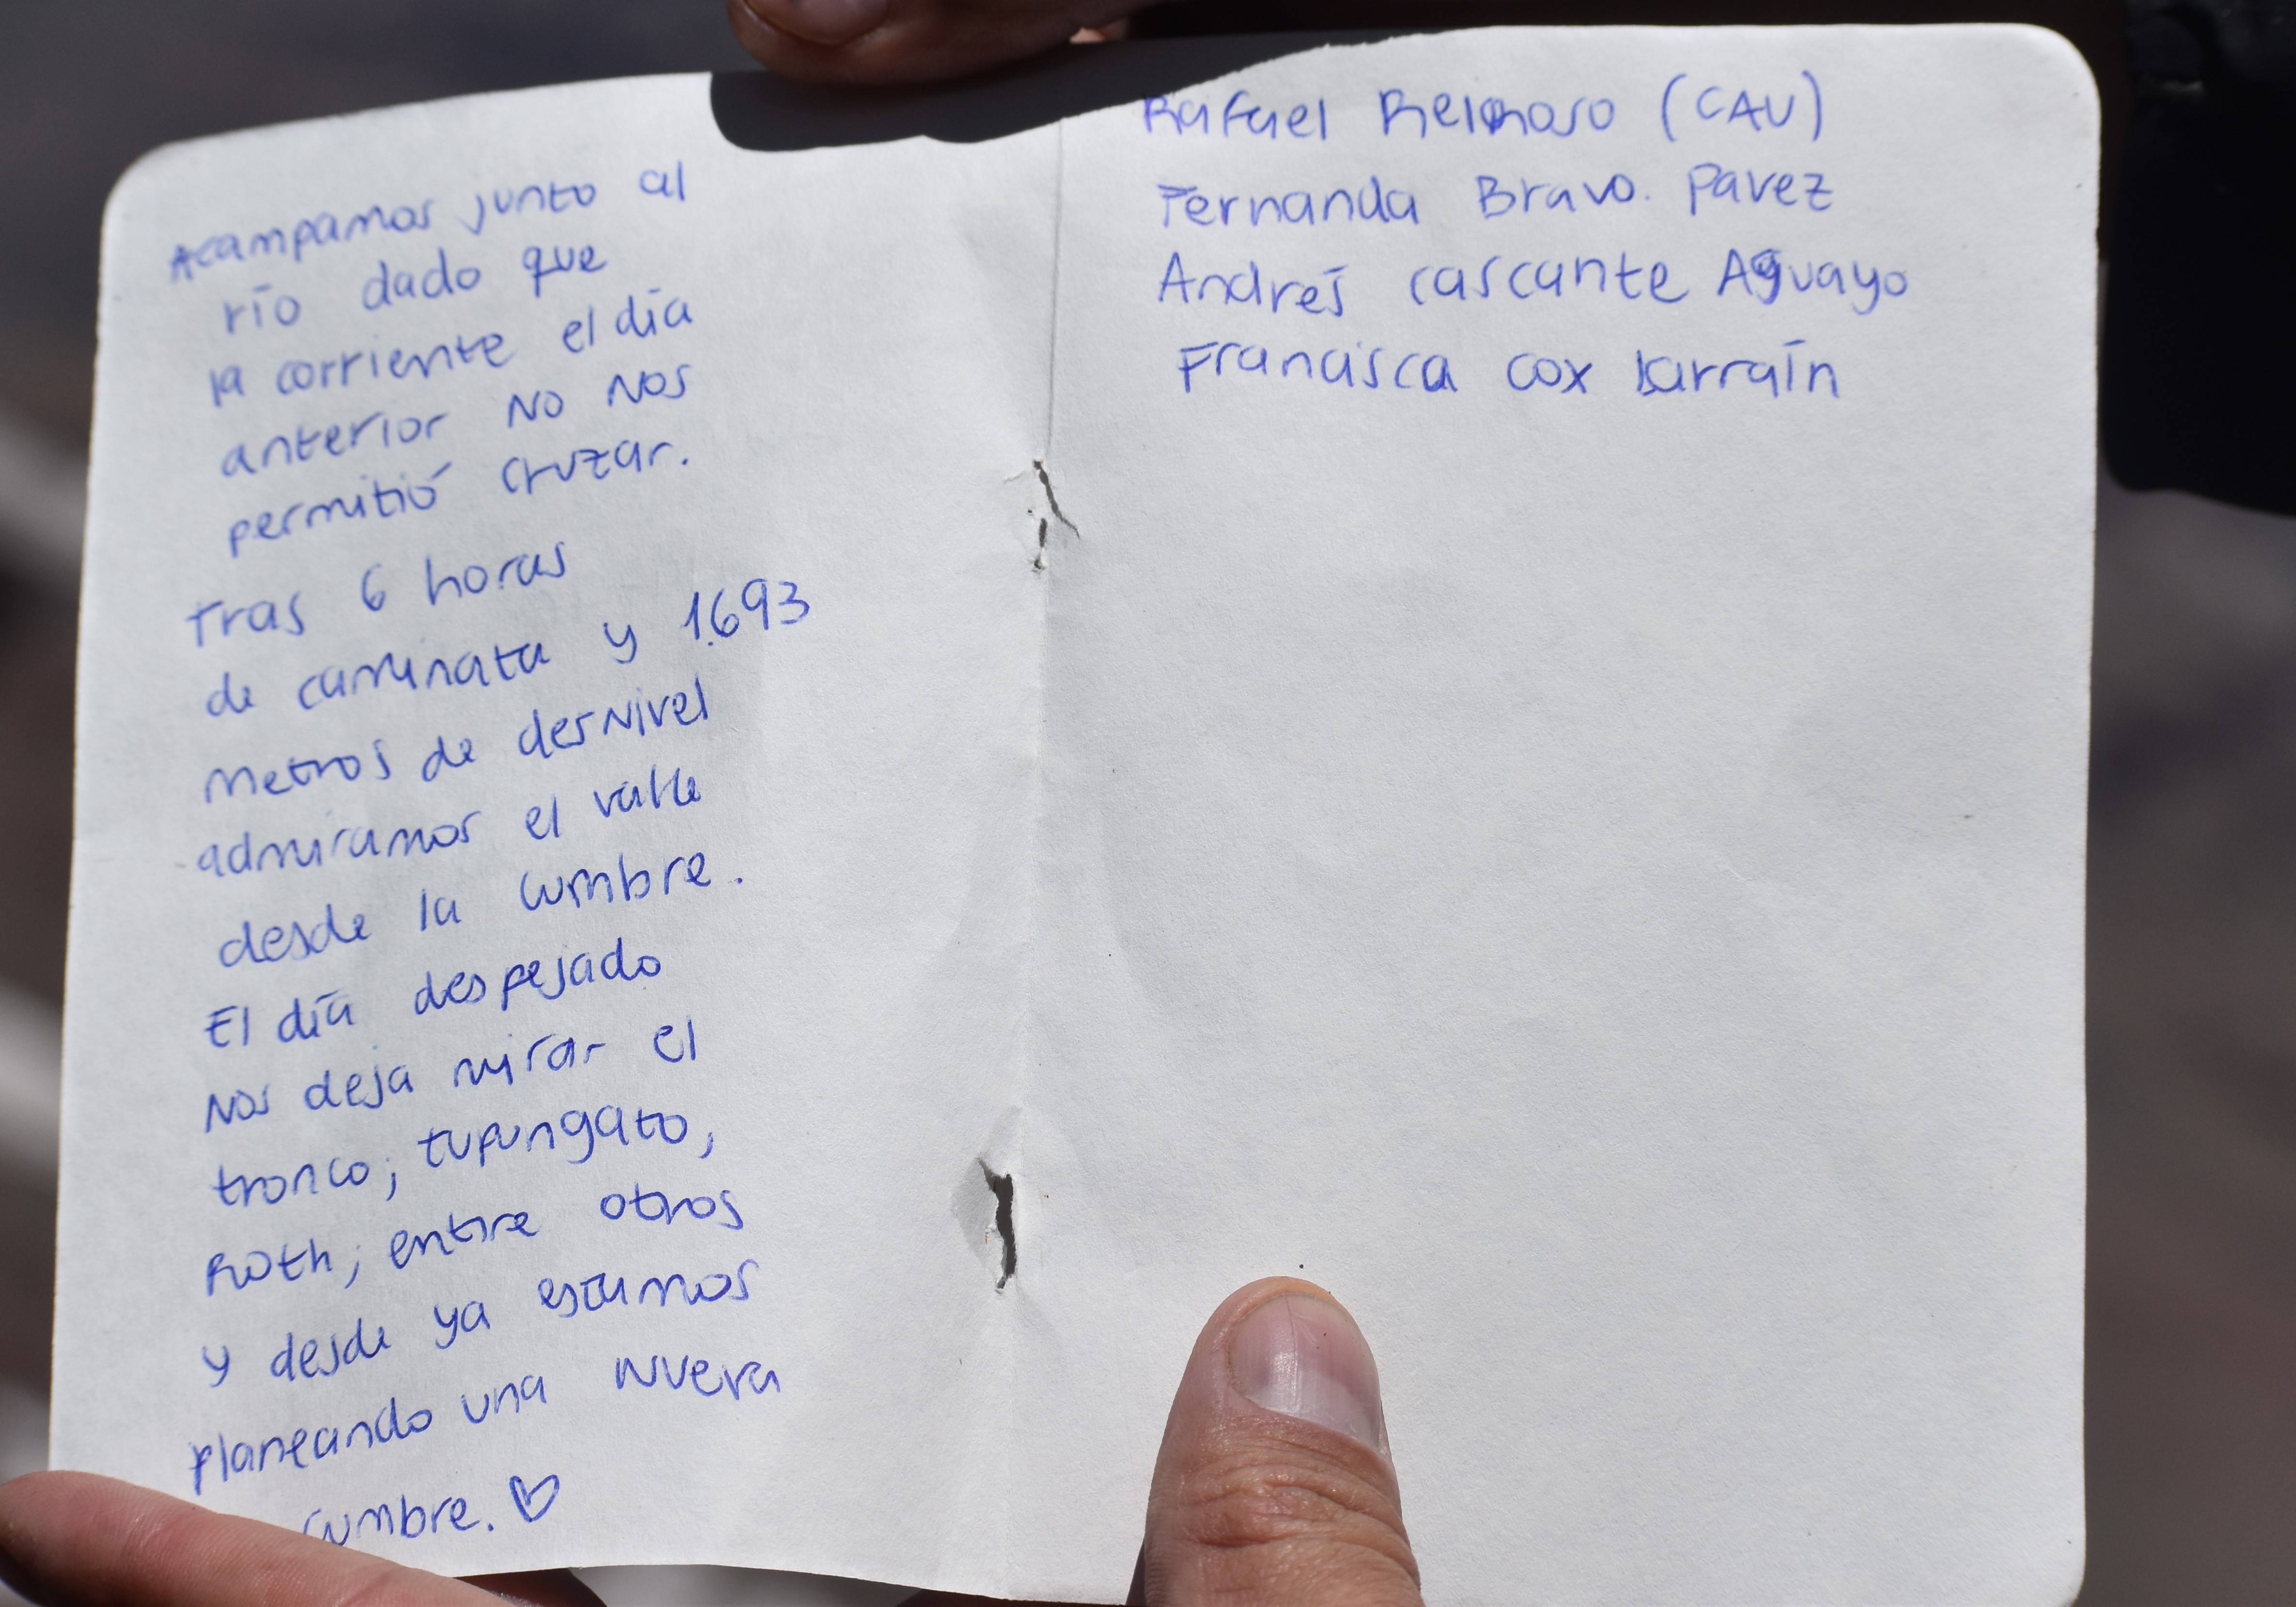 Acampamos junto al
río dado que
la corriente el día
anterior NO NOS
permitió cruzar.
Tras 6 horas
de caminata y 1.693
metros de desnivel
admiramos el valle
desde la cumbre.
El día despejado
Nos deja mirar el
tronco, tupungato,
Roth, entre otros
y desde ya estamos
planeando una nueva
cumbre. ♡
Rafael Reinoso (CAU)
Fernanda Bravo. Pavez
Andrés Cascante Aguayo
Francisca Cox Larraín